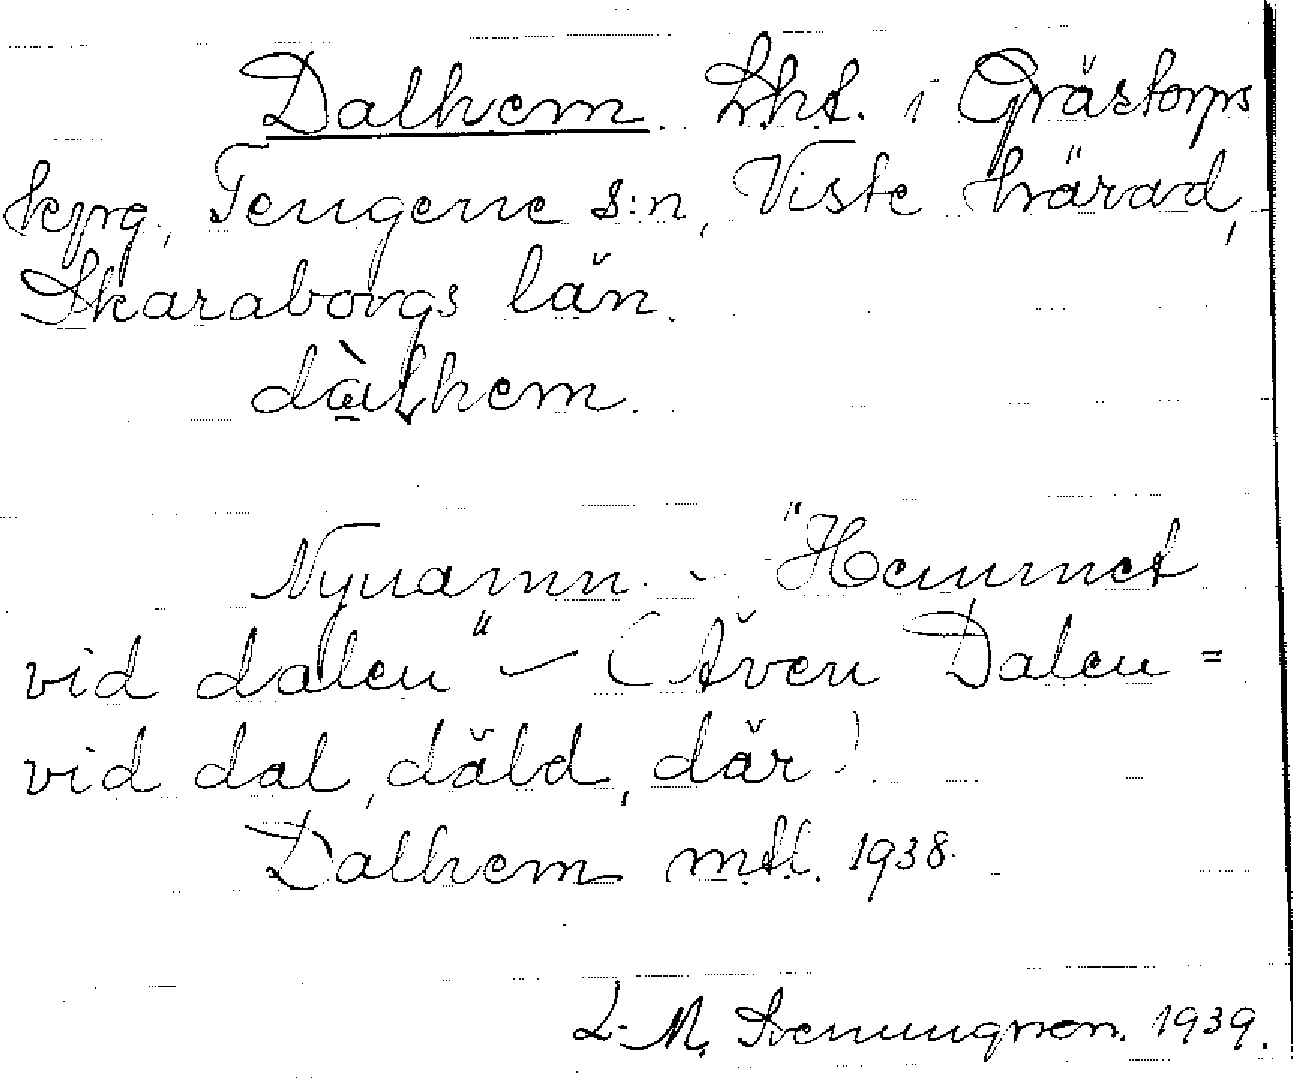 Dalhem. Lht. i Grästorps
kpg, Tengene s:n, Viste härad,
Skaraborgs län.
dàlhem.
Nynamn. - "Hemmet
vid dalen" - (Även Dalen =
vid dal, däld, där)
Dalhem mtl. 1938.
L. M. 1939.